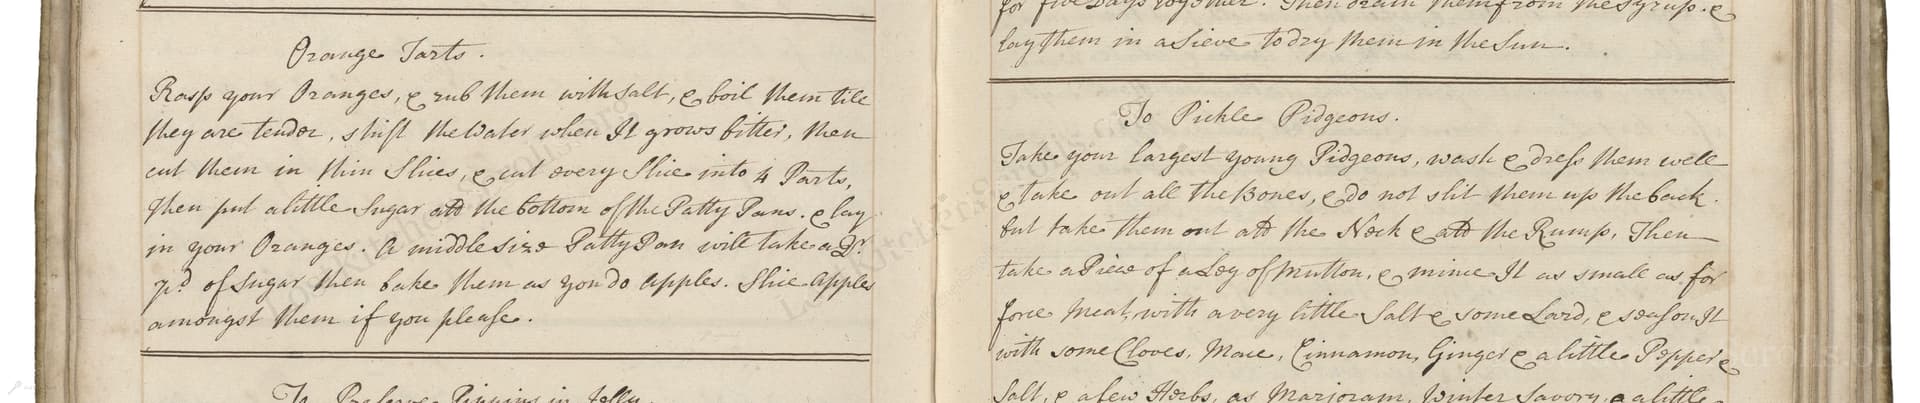 Orange Tarts.
Rasp your Oranges, & rub them with Salt, & boil them till
they are tender, shift the Water when It grows bitter, then
cut them in thin Slices, & cut every Slice into 4 Parts,
Then put a little Sugar att the bottom of the Patty Pans. & lay
in your Oranges. A middle size Patty Pan will take a Qr.
pd. of Sugar then bake them as you do Apples. Slice Apples
amongst them if you please.
To Preserve Pippins in Jelly.
for five Days together. Then drain them from the Syrup. &
lay them in a Sieve to dry them in the Sun.
To Pickle Pidgeons.
Take your largest young Pidgeons, wash & dress them well
& take out all the Bones, & do not slit them up the back.
but take them out att the Neck & att the Rump, Then
take a Piece of a Leg of Mutton, & mince It as small as for
force Meat, with a very little Salt & some Lard, & season It
with some Cloves, Mace, Cinnamon, Ginger & a little Pepper &
Salt, & a few Herbs, as Marjoram, Winter Savory, & a little